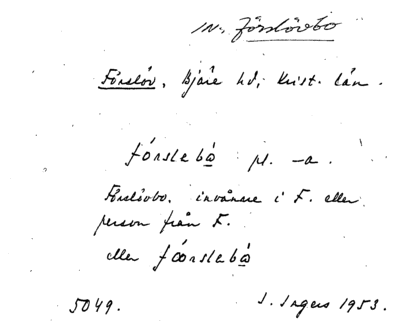 in. Förslövbo
Förslöv, Bjäre hd; Krist. län.
fórslebå pl. -a.
Förslövbo, invånare i F. eller
person från F.
eller fóorslebå
5049. I. Ingers 1953.